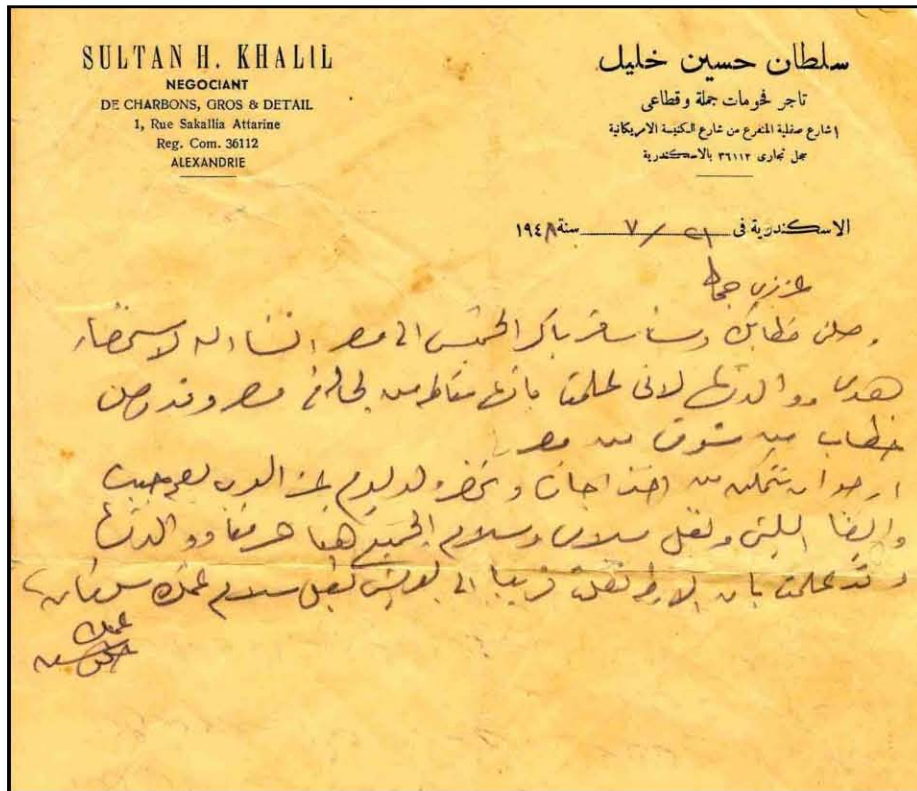 SULTAN H. KHALIL
NEGOCIANT
DE CHARBONS, GROS & DETAIL
1, Rue Sakallia Attarine
Reg. Com. 36112
ALEXANDRIE
سلطان حسين خليل
تاجر فحومات جملة وقطاعى
١ شارع صقلية المتفرع من شارع الكنيسة الامريكانية
سجل تجارى ٣٦١١٢ بالاسكندرية
الاسكندرية فى ٢١ / ٧ سنة ١٩٤٨
عزيزى جمال
وصلنى خطابك وسأسافر باكر الخميس الى مصر انشاء الله لاستحضار
هدى ووالدتها لانى علمت بانها من فى مصر وقد وصلنى
خطاب من شوقى من مصر
ارجو ان تتمكن من اخذ اجازة وتحضر ولو يوم
وايضا الليثى وتقبل سلامى وسلام الجميع هنا ووالدتها
وقد علمت بان نقلت قريبا الى تقبل سلام عمك سلطان
عمك